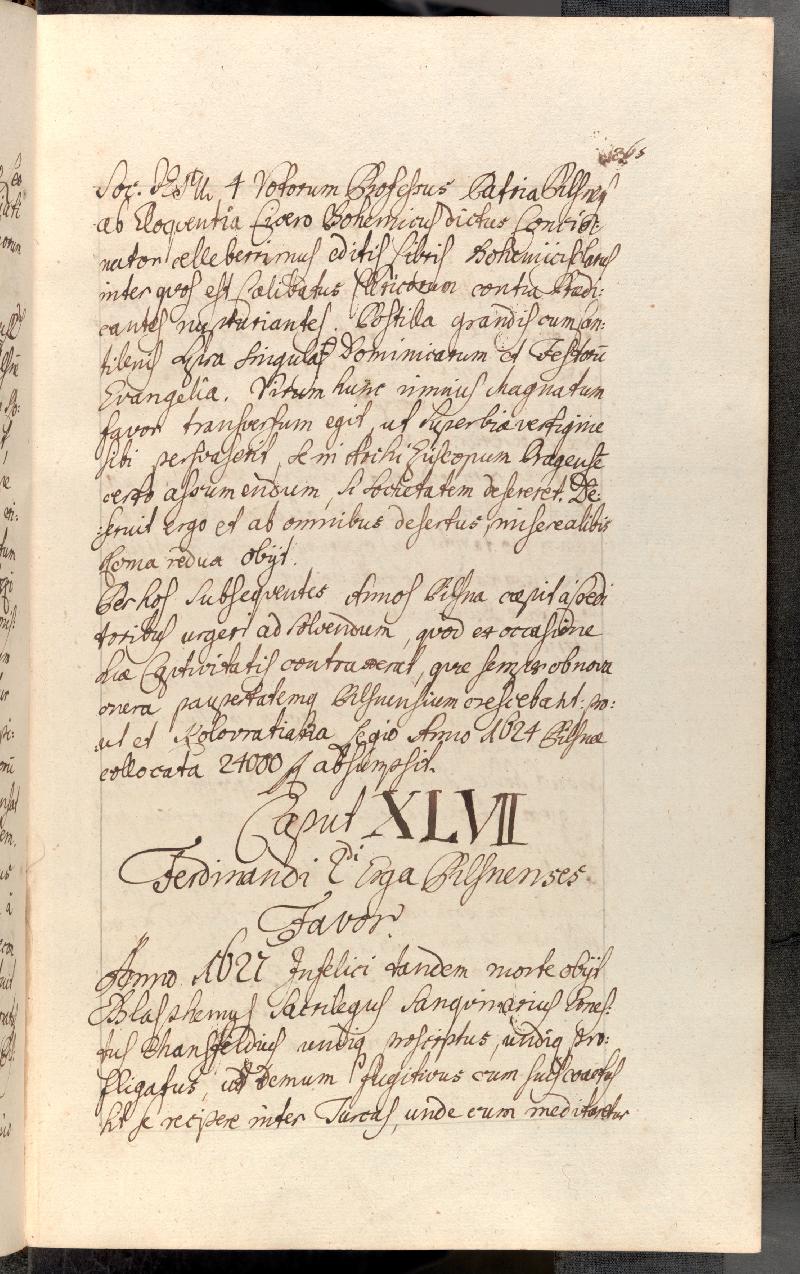 Soc. JESU, 4 Votorum Professus Patria Pilsnens
ab Eloqventia Cicero Bohemicus dictus Concio:
nator celleberrimus editis libris Bohemicis clarus
inter quos est Cælibatus Clericorum contra Prædi:
cantes nupturiantes. Postilla grandis cum Can:
tilenis supra singulas Dominicarum et Festorū
Evangelia. Virum hunc nimius Magnatum
favor transversum egit, ut superbiæ vertigine
sibi persvaserit, se in Archi Episcopum Pragensē
certo assumendum, si Societatem desereret. De:
:seruit ergo et ab omnibus desertus, misere alibis
Roma redux obijt.
Per hos subseqventes Annos Pilsna cæpit à
toribus urgeri ad solvendum, quod ex occasione
suæ Captivitatis contraxerat, quæ semper ob nova
onera paupertatemq Pilsnensium crescebant. pro:
ut et Kolovratiana Legio Anno 1624 Pilsnæ
collocata 24000 f absumpsit.
Caput XLVII
Ferdinandi 2di Erga Pilsnenses
Favor.
Anno 1627 Infelici tandem morte obijt
Blasphemus Sacrilegus Sanguinarius Ernes:
tus Mansfeldius undiq proscriptus, undiq pro:
fligatus, demum fugitivus cum suis coactus
sit se recipere inter Turcas, unde cum meditaretur